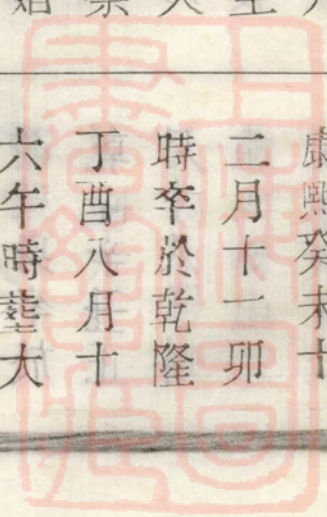 康熙癸未十
二月十一卯
時卒於乾隆
丁酉八月十
六午時葬大